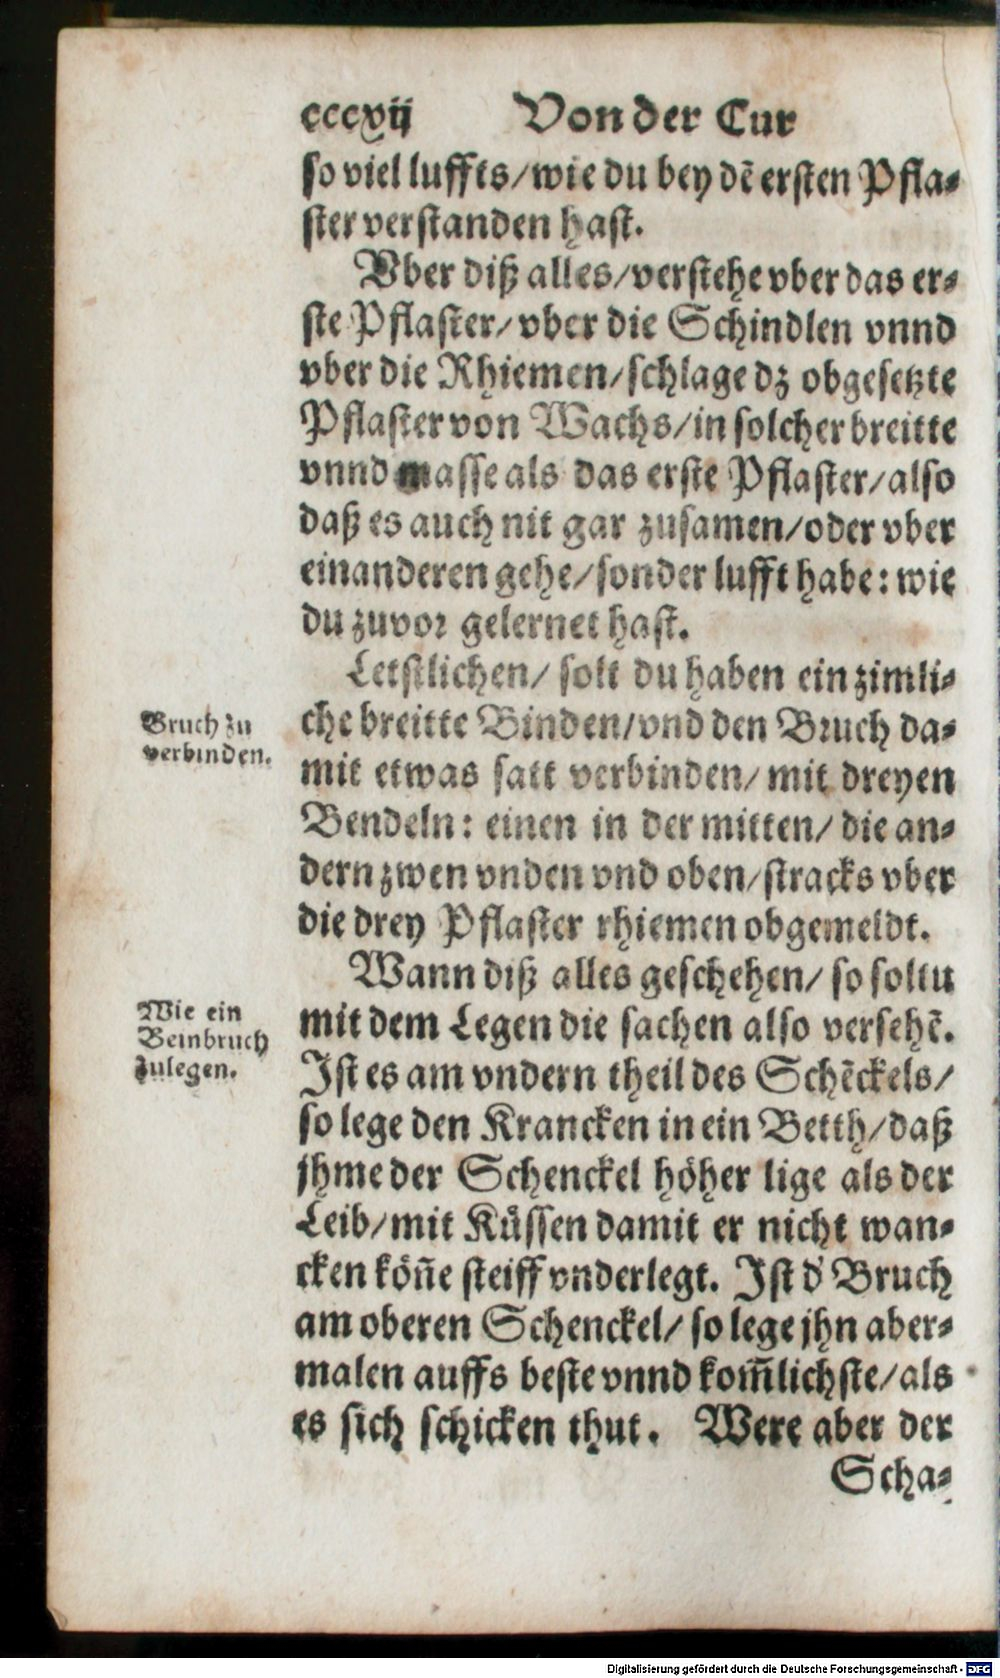 cccxvij Von der Cur
so viel luffts/wie du bey dē ersten Pfla-
ster verstanden hast.
Vber diß alles/verstehe vber das er-
ste Pflaster/vber die Schindlen vnnd
vber die Rhiemen/schlage dz obgesetzte
Pflaster von Wachs/in solcher breitte
vnnd masse als das erste Pflaster/also
daß es auch nit gar zusamen/oder vber
einanderen gehe/sonder lufft habe: wie
du zuvor gelernet hast.
Letstlichen/ solt du haben ein zimli-
Bruch zu
verbinden.
che breitte Binden/vnd den Bruch da-
mit etwas satt verbinden/ mit dreyen
Bendeln: einen in der mitten/ die an-
dern zwen vnden vnd oben/stracks vber
die drey Pflaster rhiemen obgemeldt.
Wann diß alles geschehen/ so soltu
Wie ein
Beinbruch
zulegen.
mit dem Legen die sachen also versehē.
Ist es am vndern theil des Schēckels/
so lege den Krancken in ein Betth/daß
jhme der Schenckel höher lige als der
Leib/mit Küssen damit er nicht wan-
cken köñe steiff vnderlegt. Ist d' Bruch
am oberen Schenckel/ so lege jhn aber-
malen auffs beste vnnd kom̄lichste/als
es sich schicken thut. Were aber der
Scha-
Digitalisierung gefördert durch die Deutsche Forschungsgemeinschaft - DFG